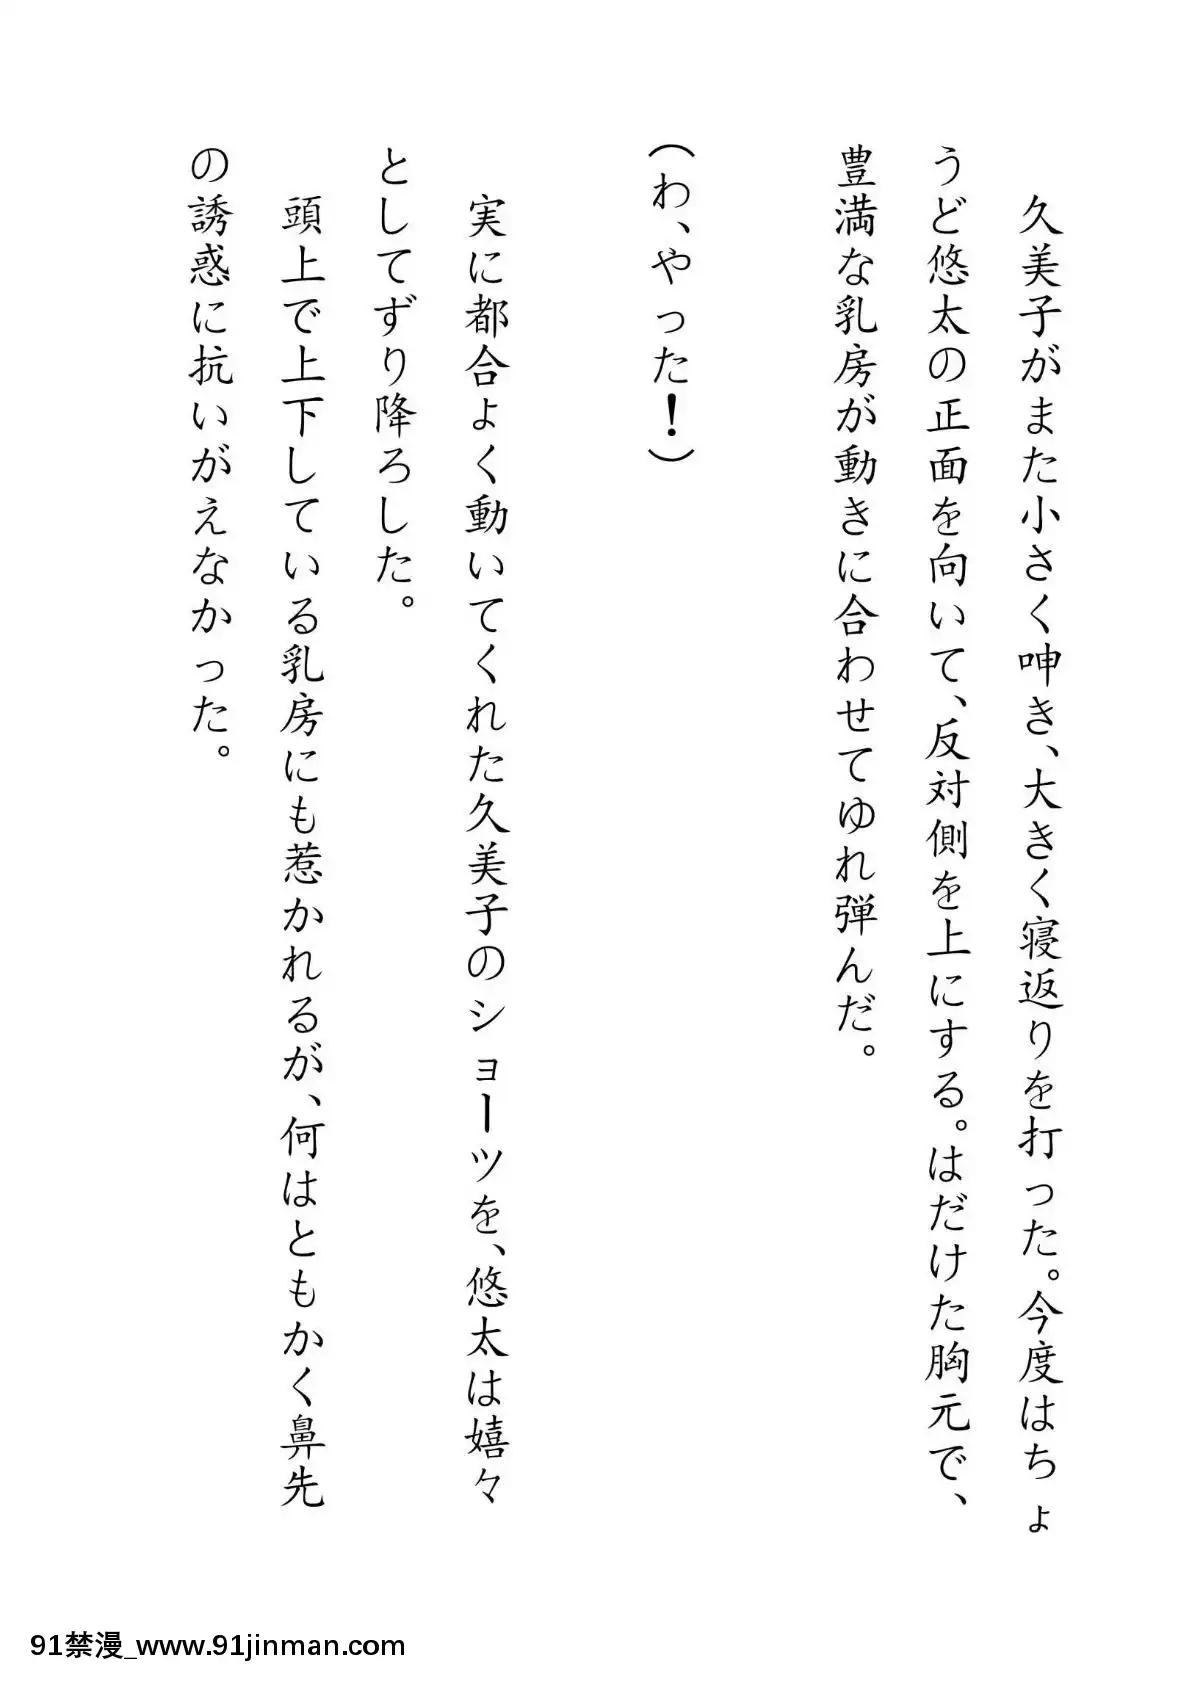 久美子がまた小さく呻き、大きく寝返りを打った。今度はちょ
うど悠太の正面を向いて、反対側を上にする。はだけた胸元で、
豊満な乳房が動きに合わせてゆれ弾んだ。
（わ、やった！）
実に都合よく動いてくれた久美子のショーツを、悠太は嬉々
としてずり降ろした。
頭上で上下している乳房にも惹かれるが、何はともかく鼻先
の誘惑に抗いがえなかった。
91禁漫_www.91jinman.com